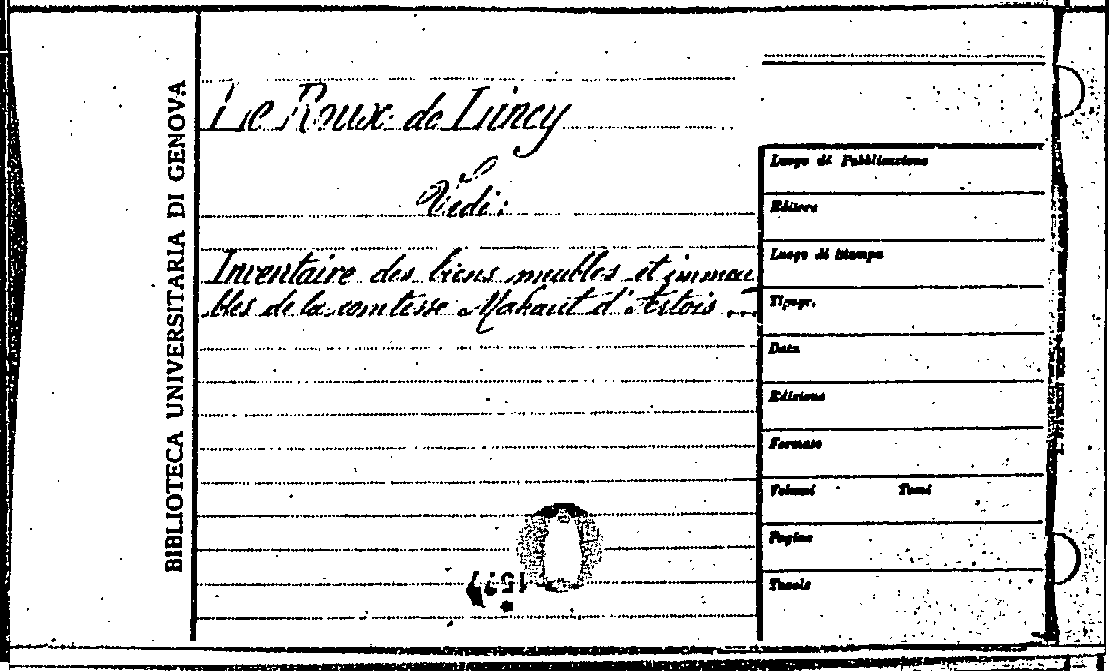 BIBLIOTECA UNIVERSITARIA DI GENOVA
Le Roux de Lincy
Vedi:
Inventaire des biens meubles et immeu
bles de la comtesse Mahaut d'Artois ...
Luogo di Pubblicazione
Editore
Luogo di stampa
Tipogr.
Data
Edizione
Formato
Volumi Tomi
Pagine
Tavole